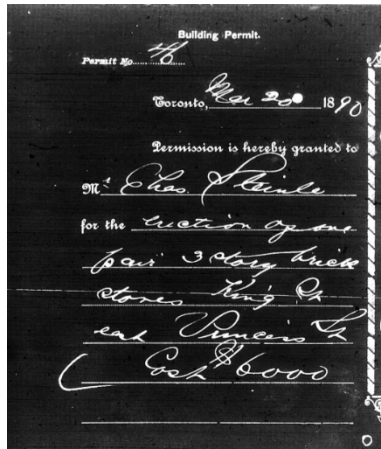 Building Permit.
Permit No 46
Toronto, Mar 20 1890
Permission is hereby granted to
Mr Chas. Steinle
for the erection of one
pair 3 story brick
stores King St
east Princess St
Cost $6000